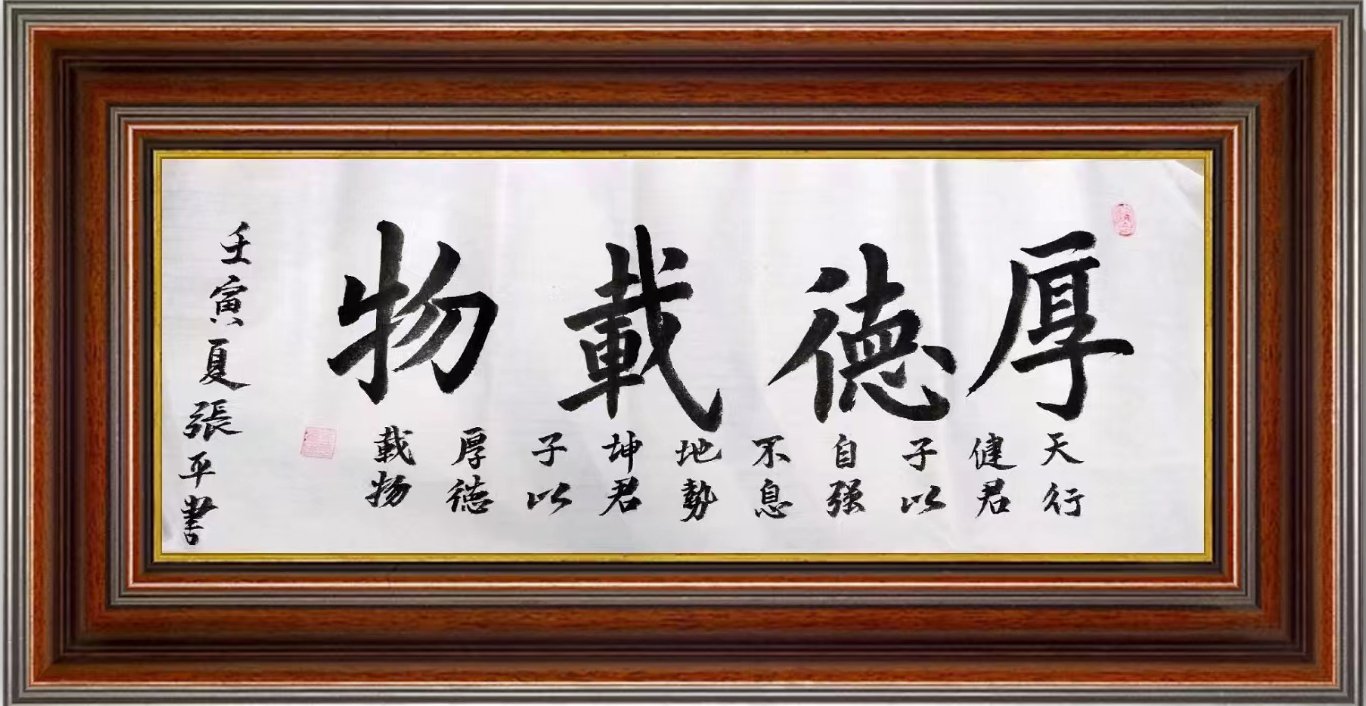 厚德載物
天行
健君
子以
自强
不息
地勢
坤君
子以
厚德
載物
壬寅夏張平書